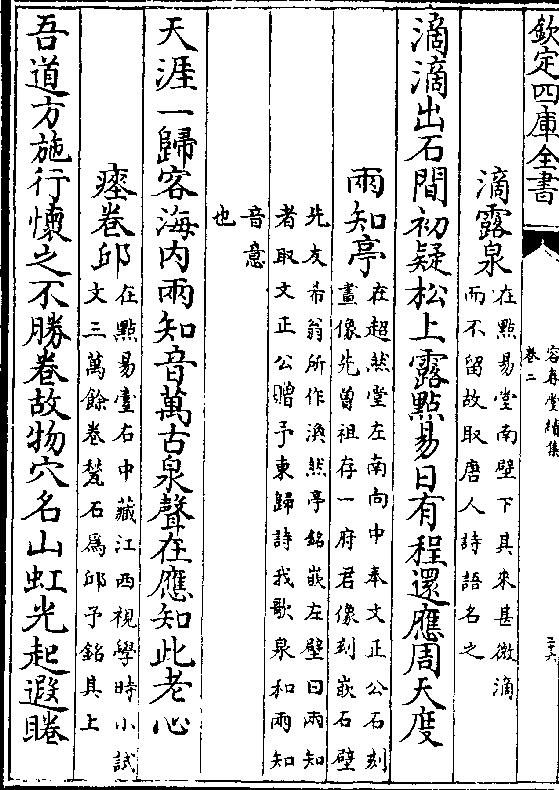 欽定四庫全書
容春堂續集
卷二
二十六
滴露泉
在點易堂南壁下其來甚微滴
而不留故取唐人詩語名之
滴滴出石間初疑松上露點易日有程還應周天度
雨知亭
在超然堂左南向中奉文正公石刻
畫像先曾祖存一府君像刻嵌石壁
先友希翁所作渙然亭銘嵌左壁曰雨知
者取文正公贈予東歸詩我歌泉和雨知
音意
也
天涯一歸客海内雨知音萬古泉聲在應知此老心
瘞卷邱
在點易臺右中藏江西視學時小試
文三萬餘卷甃石爲邱予銘其上
吾道方施行懷之不勝卷故物穴名山虹光起遐睠